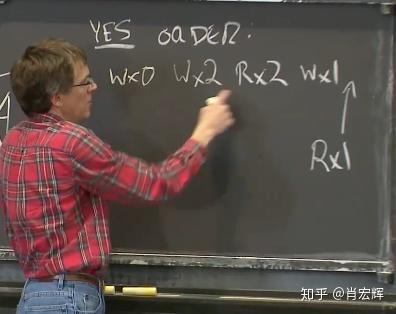 YES ORDER:
Wx0 Wx2 Rx2 Wx1
Rx1
知乎 @肖宏辉